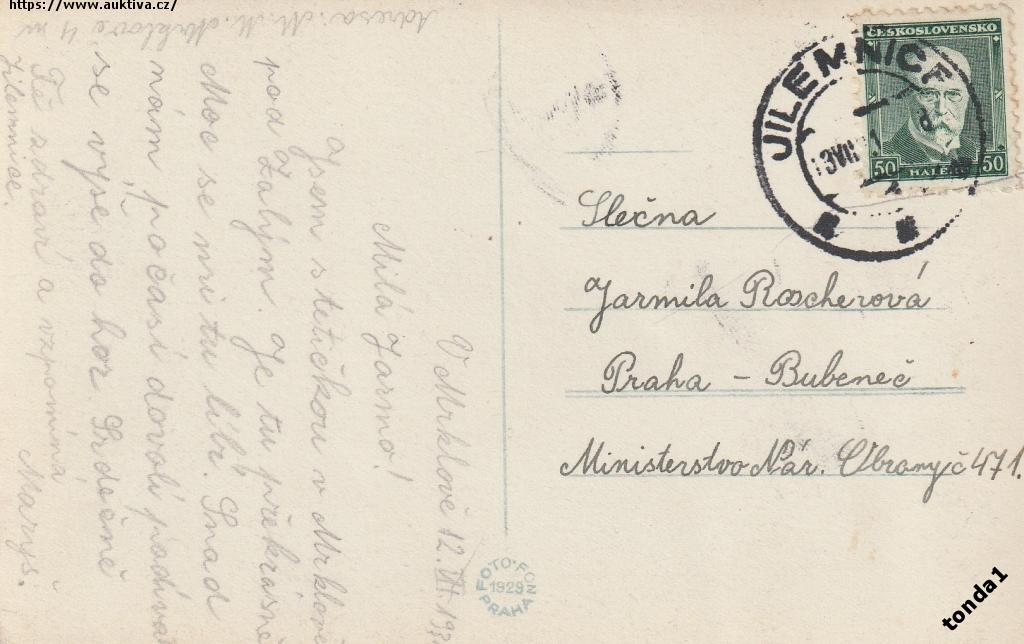 https://www.auktiva.cz/
V Mrklově 12. VII. 193
Milá Jarmo!
Jsem s tetičkou v Mrklově
pod Žalým. Je tu překrásně
Moc se mi tu líbí. Snad
nám počasí dovolí podívat
se výše do hor Srdečně
Tě zdraví a vzpomíná
Marys.
Adresa: M. M. Mrklov č. 4 
Jilemnice.
ČESKOSLOVENSKO
50 HALÉŘ 50
JILEMNICE
13 VII
Slečna
Jarmila Roscherová
Praha - Bubeneč
Ministerstvo Nár. Obrany č 471.
FOTO-FON
1929
PRAHA
tonda1